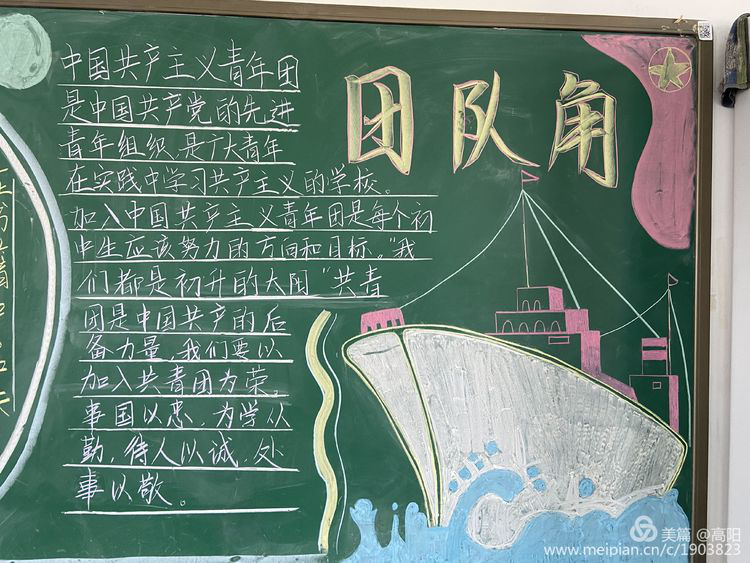 团队角
中国共产主义青年团
是中国共产党的先进
青年组织,是广大青年
在实践中学习共产主义的学校。
加入中国共产主义青年团是每个初
中生应该努力的方向和目标。"我
们都是初升的太阳"共青
团是中国共产的后
备力量,我们要以
加入共青团为荣。
事国以忠,为学从
勤,待人以诚,处
事以敬。
美篇 @高阳
www.meipian.cn/c/1903823